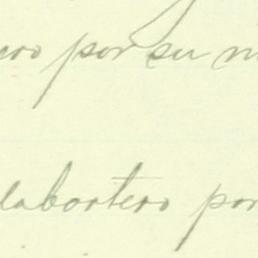 por su
labortero por